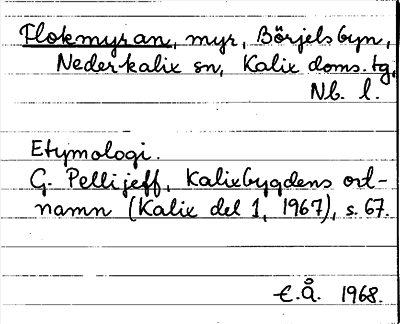 Flokmyran, myr, Börjelsbyn,
Nederkalix sn, Kalix doms.tg,
Nb. l.
Etymologi.
G. Pellijeff, Kalixbygdens ort-
namn (Kalix del 1, 1967), s. 67.
E.Å. 1968.